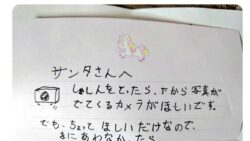 サンタさんへ
しゃしんをとったら、下から写真が
でてくるカメラがほしいです。
でも、ちょっとほしいだけなので、
まにあわなかったら